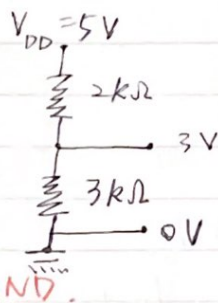 V_DD=5V
2kΩ
3V
3kΩ
0V
ND.